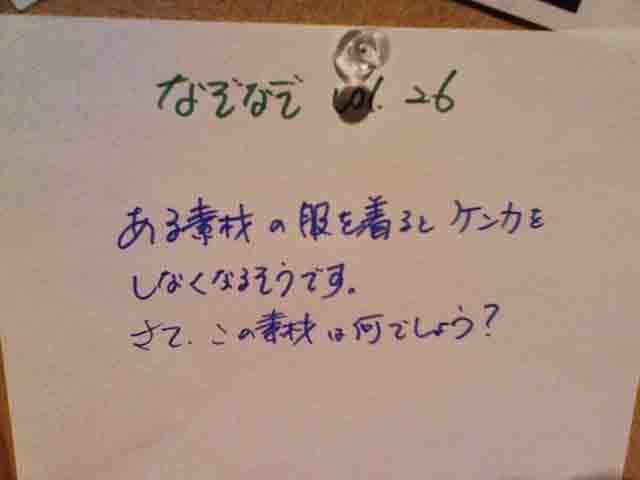 なぞなぞ vol. 26
ある素材の服を着るとケンカを
しなくなるそうです。
さて、この素材は何でしょう?